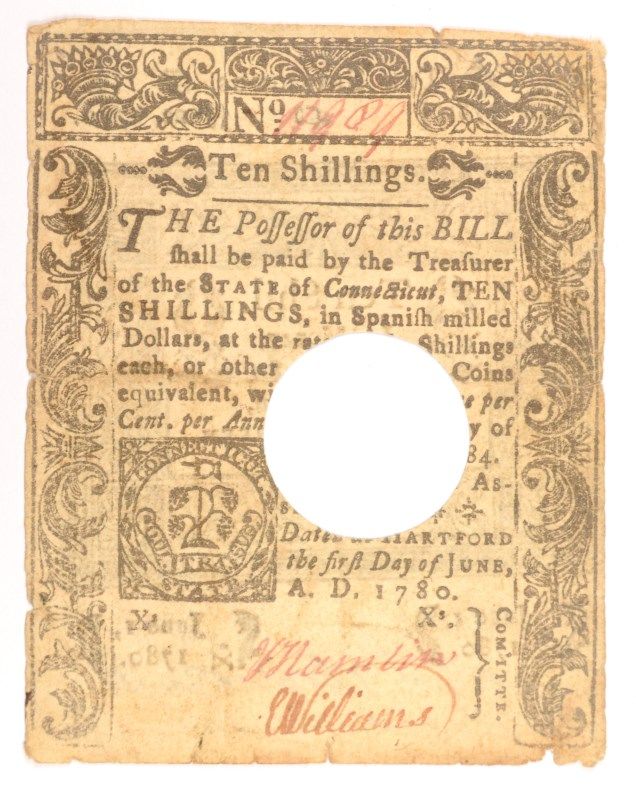 No. 11989
Ten Shillings.
THE Poſſeſſor of this BILL
ſhall be paid by the Treaſurer
of the STATE of Connecticut, TEN
SHILLINGS, in Spaniſh milled
Dollars, at the Shillings
each, or other Coins
equivalent, per
Cent. per of
84.
As-
Dated at HARTFORD
the firſt Day of JUNE,
A. D. 1780.
CONNECTICUT
STATE
Xs. Xs.
COMITTE.
EWilliams